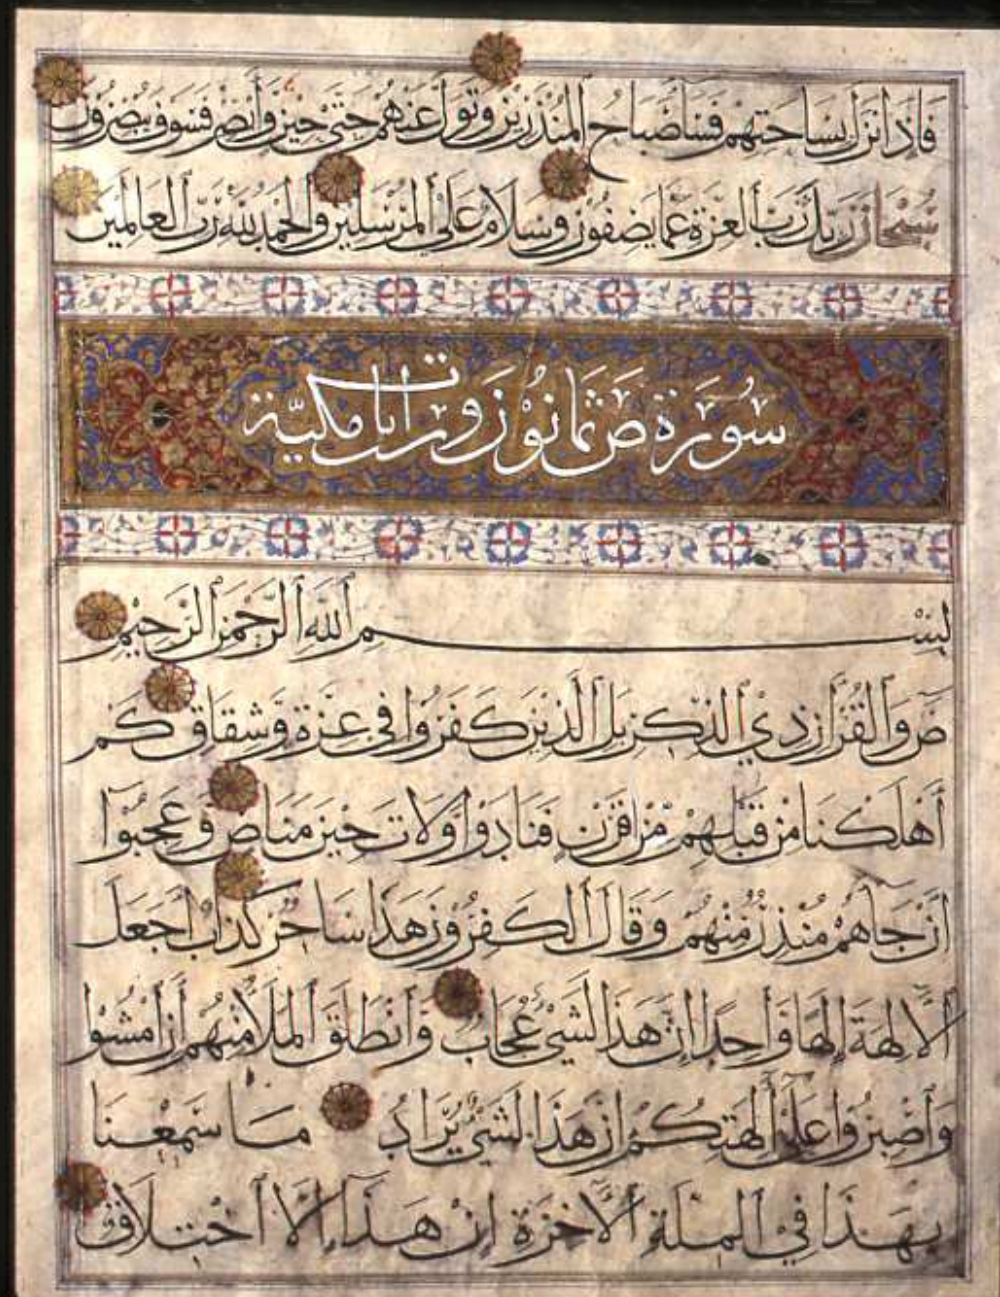 فاذا نزل بساحتهم فساء صباح المنذرين وتول عنهم حتى حين وأبصر فسوف يبصرون
سبحان ربك رب العزة عما يصفون وسلام على المرسلين والحمد لله رب العالمين
سورة ص ثمانون وست ايات مكية
بسم الله الرحمن الرحيم
ص والقرآن ذي الذكر بل الذين كفروا في عزة وشقاق كم
أهلكنا من قبلهم من قرن فنادوا ولات حين مناص وعجبوا
أن جاهم منذر منهم وقال الكفرون هذا ساحر كذاب أجعل
الالهة إلها واحدا إن هذا لشيء عجاب وانطلق الملأ منهم أن امشوا
واصبروا على الهتكم إن هذا لشيء يراد ما سمعنا
بهذا في الملة الآخرة إن هذا إلا اختلاق